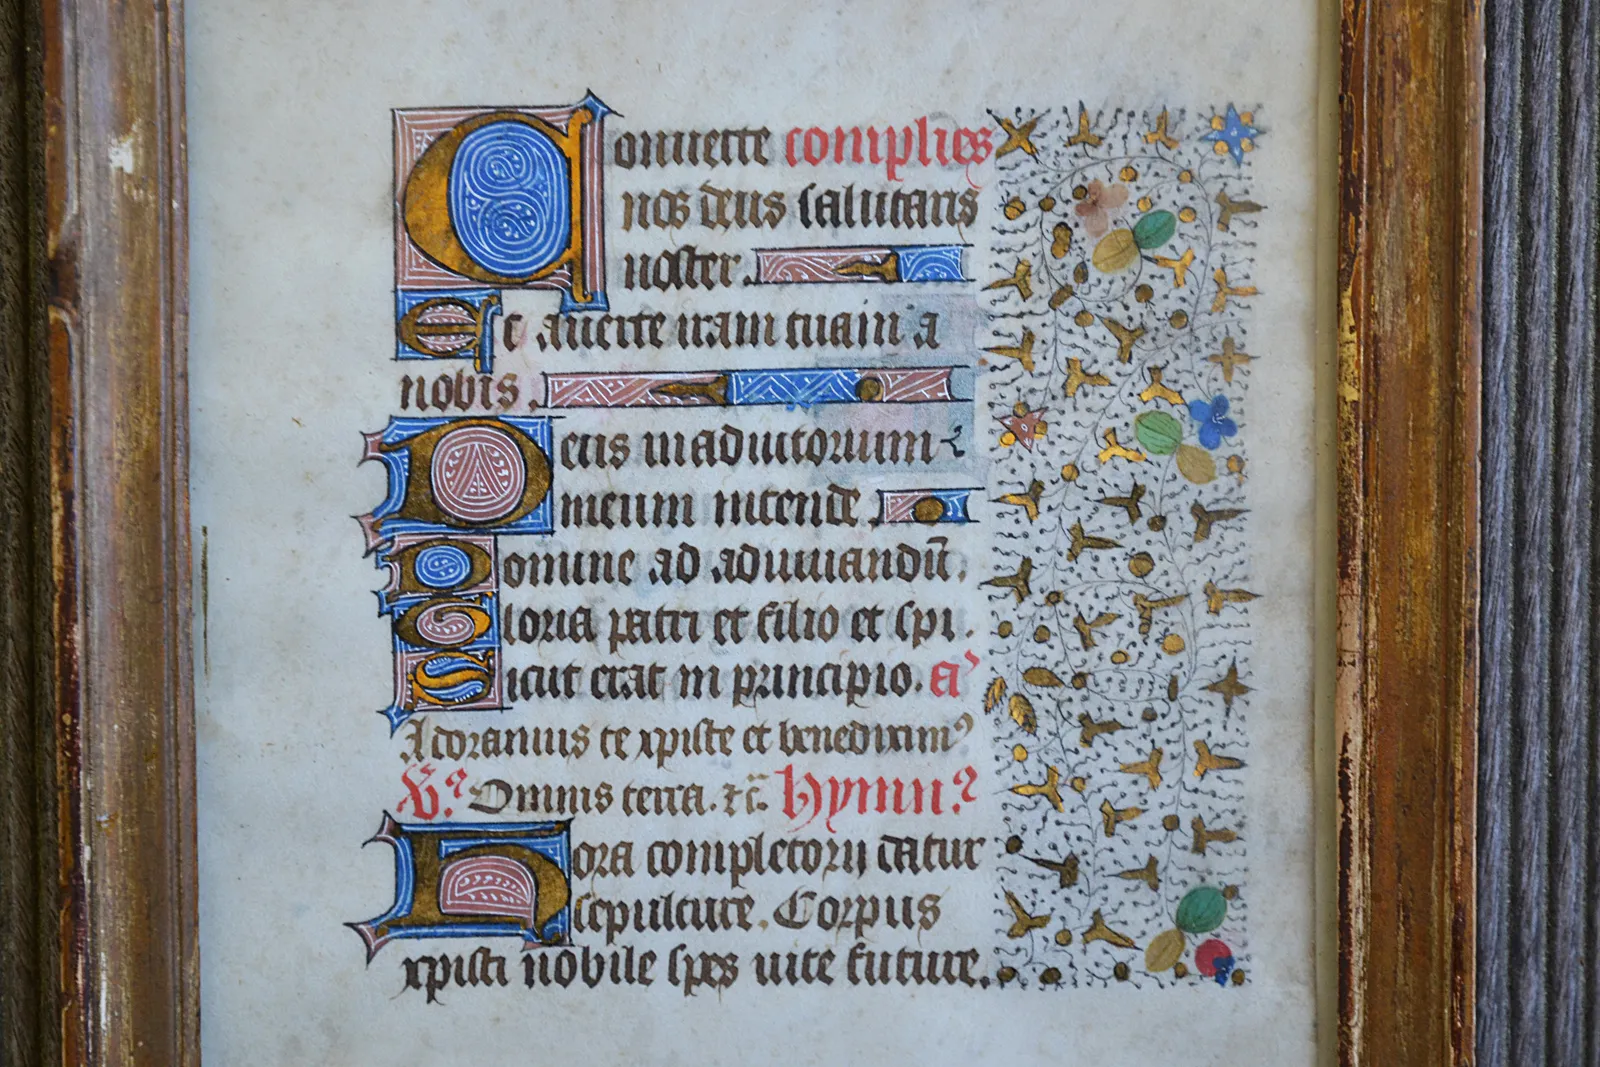 Conuerte complies
nos deus salutaris
noster.
Et auerte iram tuam a
nobis.
Deus in adiutorium
meum intende.
Domine ad adiuuandū.
Gloria patri et filio et spi.
Sicut erat in principio. a’
Adoramus te xpiste et benedicim⁹
V̄⁹. Omnis terra. ⁊c̄. Hymn⁹
Hora completorii datur
sepulture. Corpus
xpisti nobile spes uite future.